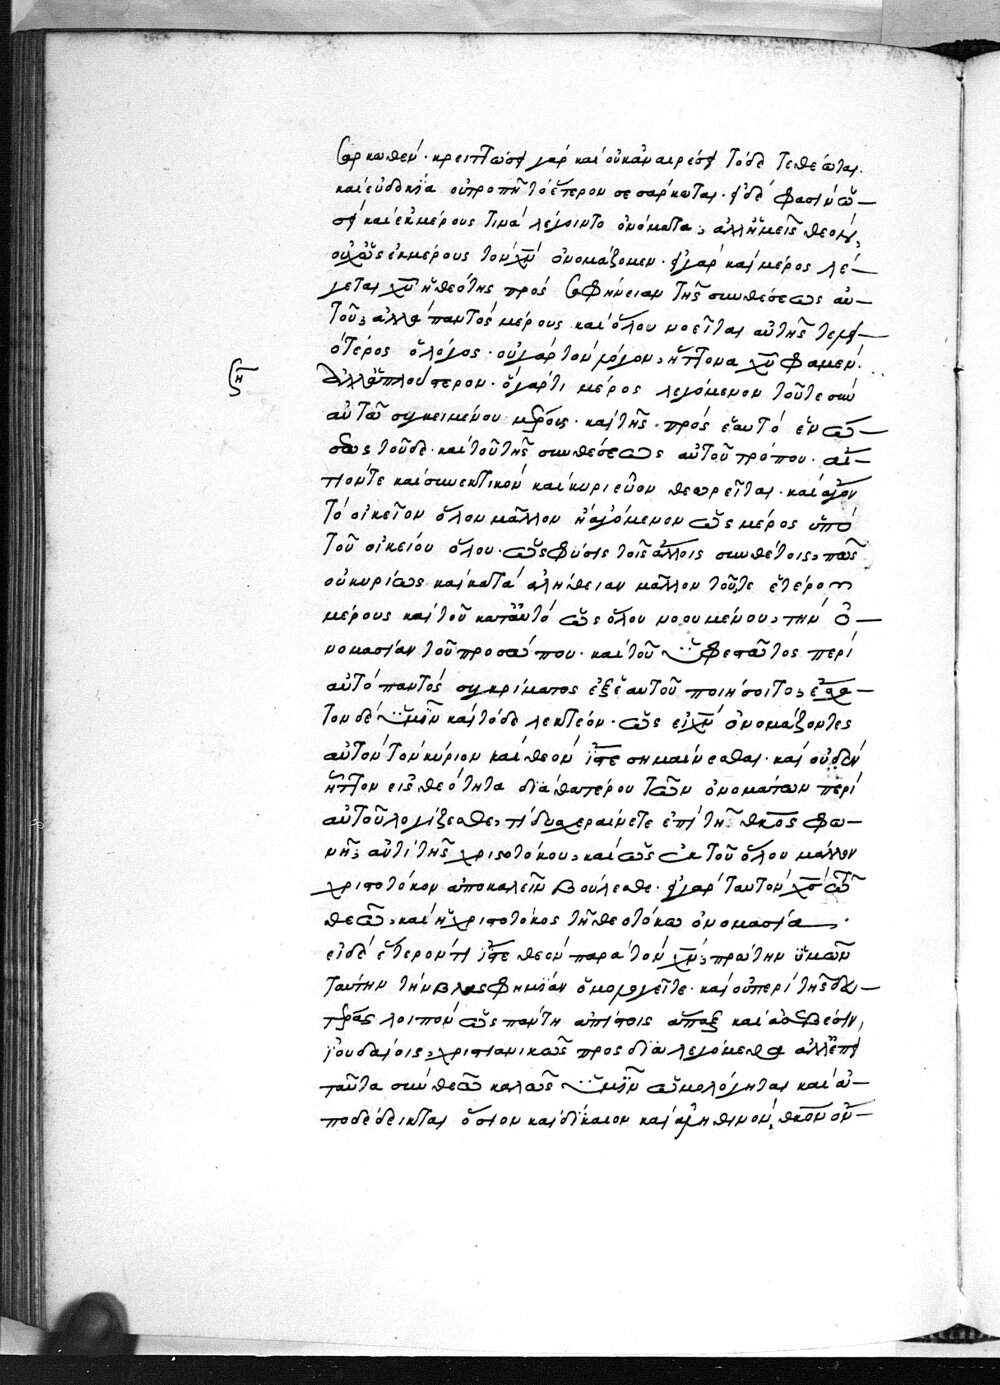 σαρκωθέν· κρειττώσει γὰρ καὶ οὐκ ἀναιρέσει τόδε τεθέωται.
καὶ εὐδοκία οὐ τροπῇ τὸ ἕτερον σεσάρκωται· εἰ δέ φασιν ὡ
σεὶ καὶ ἐκ μέρους τινὰ λέγοιντο ὀνόματα, ἀλλ' ἡμεῖς θεοῦ
οὐχ ὡς ἐκ μέρους τὸν χν ὀνομάζομεν· εἰ γὰρ καὶ μέρος λέ
γεται χῦ ἡ θεότης πρὸς σαφήνειαν τῆς συνθέσεως αὐ
τοῦ, ἀλλὰ παντὸς μέρους καὶ ὅλου νοεῖται αὐτῆς
ὁ λόγος· οὐ γὰρ τὸν λόγον, ἥττονα χῦ φαμέν.
ἀλλ' ἁπλούστερον· ὃ γάρ τι μέρος λεγόμενον τοῦ τε σὺν
αὐτῶ συγκειμένου μέρους· καὶ τῆς πρὸς ἑαυτὸ ἑνώ
σεως τοῦδε· καὶ τοῦ τῆς συνθέσεως αὐτοῦ τρόπου· αἴ
τιόν τε καὶ συνεκτικὸν καὶ κυριεῦον θεωρεῖται· καὶ ἄγον
τὸ οἰκεῖον ὅλον μᾶλλον ἢ ἀγόμενον ὡς μέρος ὑπὸ
τοῦ οἰκείου ὅλου· ὡς φύσις τοῖς ἄλλοις συνθέτοις, πῶς
οὐ κυρίως καὶ κατὰ ἀλήθειαν μᾶλλον τοῦ τε ἑτέρου
μέρους καὶ τοῦ κατ' αὐτὸ ὡς ὅλου νοουμένου, τὴν ὀ
νομασίαν τοῦ προσώπου· καὶ τοῦ ὑφεστῶτος περὶ
αὐτὸ παντὸς συγκρίματος ἐξ ἑαυτοῦ ποιήσοιτο,
τον δὲ ὑμῖν καὶ τόδε λεκτέον· ὡς εἰ χν ὀνομάζοντες
αὐτὸν τὸν κύριον καὶ θεὸν ἴστε σημαίνεσθαι· καὶ οὐδὲν
ἧττον εἰς θεότητα διὰ θατέρου τῶν ὀνομάτων περὶ
αὐτοῦ λογίζεσθε, τί δυσχεραίνετε ἐπὶ τῆς θκος φω
νῆς, ἀντὶ τῆς χριστοτόκου, καὶ ὡς ἐκ τοῦ ὅλου μᾶλλον
χριστοτόκον ἀποκαλεῖν βούλεσθε· εἰ γὰρ ταυτὸν χς τῶ
θεῶ, καὶ ἡ χριστοτόκος τῇ θεοτόκω ὀνομασία.
εἰ δὲ ἕτερόν τι ἴστε θεὸν παρὰ τὸν χν, πρώτην ὑμῶν
ταύτην τὴν βλασφημίαν ὁμολογεῖτε· καὶ οὐ περὶ τῆς δευ
τέρας λοιπὸν ὡς πάντη ἀπίστοις ἅπαξ καὶ ἀσεβέσιν,
ἰουδαίοις, χριστιανικῶς προσδιαλεγόμεθα ἀλλ' ἐπεὶ
ταῦτα σὺν θεῶ καλῶς ὑμῖν ὡμολόγηται καὶ ἀ
ποδέδεικται ὅσιον καὶ δίκαιον καὶ ἀληθινόν, θκον οὖν